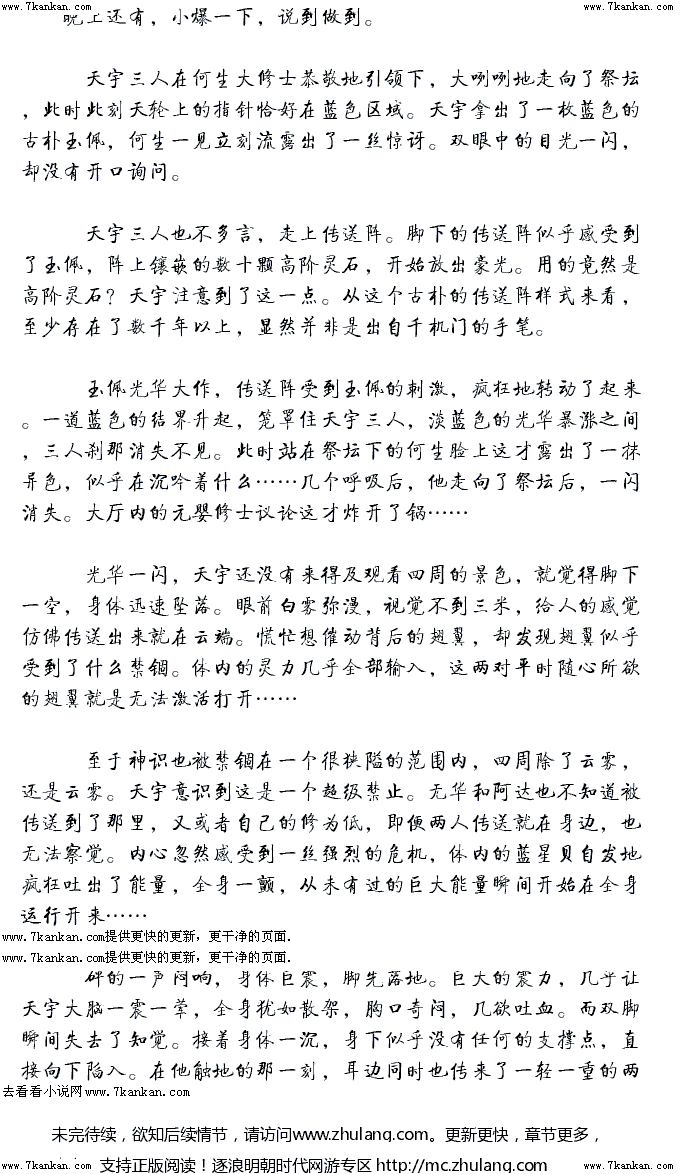 www.7kankan.com www.7kankan.com
晚上还有，小爆一下，说到做到。
天宇三人在何生大修士恭敬地引领下，大咧咧地走向了祭坛
，此时此刻天轮上的指针恰好在蓝色区域。天宇拿出了一枚蓝色的
古朴玉佩，何生一见立刻流露出了一丝惊讶。双眼中的目光一闪，
却没有开口询问。
天宇三人也不多言，走上传送阵。脚下的传送阵似乎感受到
了玉佩，阵上镶嵌的数十颗高阶灵石，开始放出豪光。用的竟然是
高阶灵石？天宇注意到了这一点。从这个古朴的传送阵样式来看，
至少存在了数千年以上，显然并非是出自千机门的手笔。
玉佩光华大作，传送阵受到玉佩的刺激，疯狂地转动了起来
。一道蓝色的结界升起，笼罩住天宇三人，淡蓝色的光华暴涨之间
，三人刹那消失不见。此时站在祭坛下的何生脸上这才露出了一抹
异色，似乎在沉吟着什么……几个呼吸后，他走向了祭坛后，一闪
消失。大厅内的元婴修士议论这才炸开了锅……
光华一闪，天宇还没有来得及观看四周的景色，就觉得脚下
一空，身体迅速坠落。眼前白雾弥漫，视觉不到三米，给人的感觉
仿佛传送出来就在云端。慌忙想催动背后的翅翼，却发现翅翼似乎
受到了什么禁锢。体内的灵力几乎全部输入，这两对平时随心所欲
的翅翼就是无法激活打开……
至于神识也被禁锢在一个很狭隘的范围内，四周除了云雾，
还是云雾。天宇意识到这是一个超级禁止。无华和阿达也不知道被
传送到了那里，又或者自己的修为低，即便两人传送就在身边，也
无法察觉。内心忽然感受到一丝强烈的危机，体内的蓝星贝自发地
疯狂吐出了能量，全身一颤，从未有过的巨大能量瞬间开始在全身
运行开来……
www.7kankan.com提供更快的更新，更干净的页面.
www.7kankan.com提供更快的更新，更干净的页面.
砰的一声闷响，身体巨震，脚先落地。巨大的震力，几乎让
天宇大脑一震一晕，全身犹如散架，胸口奇闷，几欲吐血。而双脚
瞬间失去了知觉。接着身体一沉，身下似乎没有任何的支撑点，直
接向下陷入。在他触地的那一刻，耳边同时也传来了一轻一重的两
去看看小说网www.7kankan.com
未完待续，欲知后续情节，请访问www.zhulang.com。更新更快，章节更多，
www.7kankan.com 支持正版阅读！逐浪明朝时代网游专区 http://mc.zhulang.com www.7kankan.com